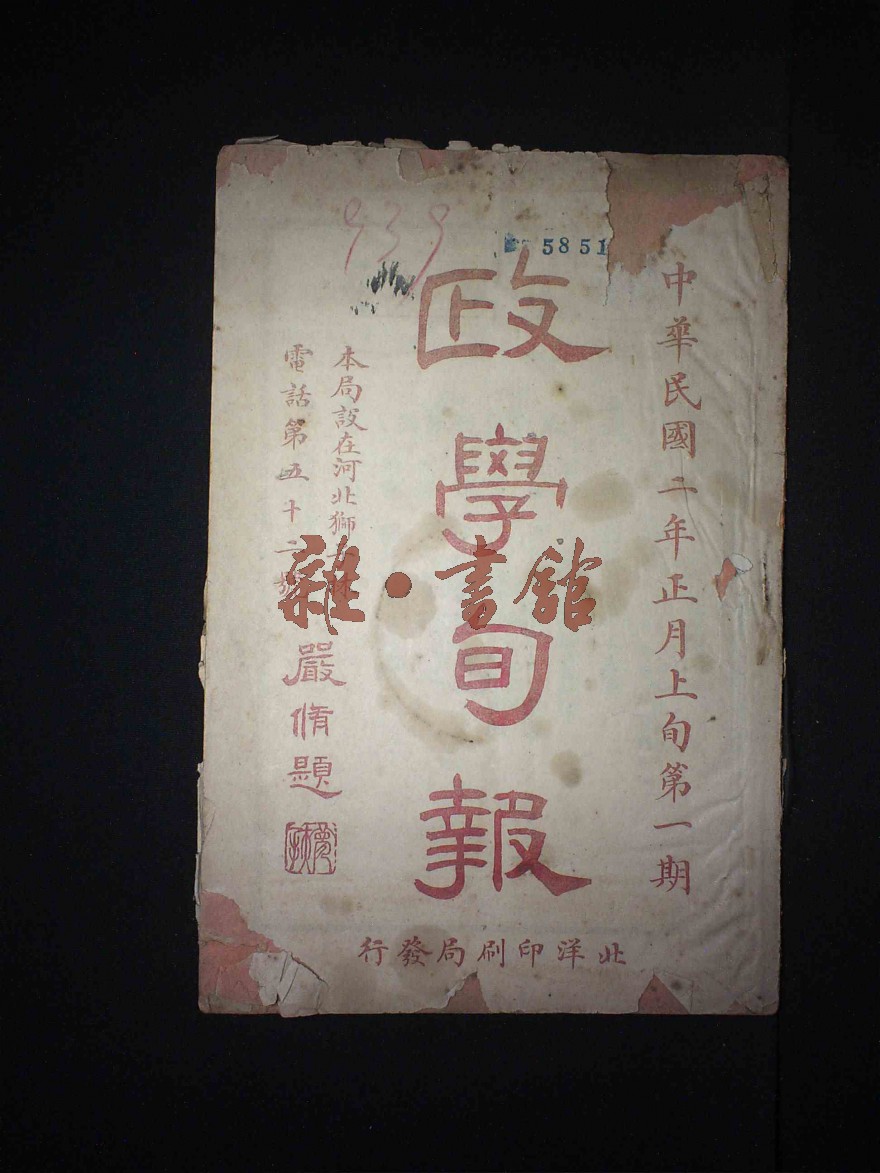 中華民國二年正月上旬第一期
政學旬報
本局設在河北獅
電話第五十二號
嚴脩題
北洋印刷局發行
939
5851
雜·書館